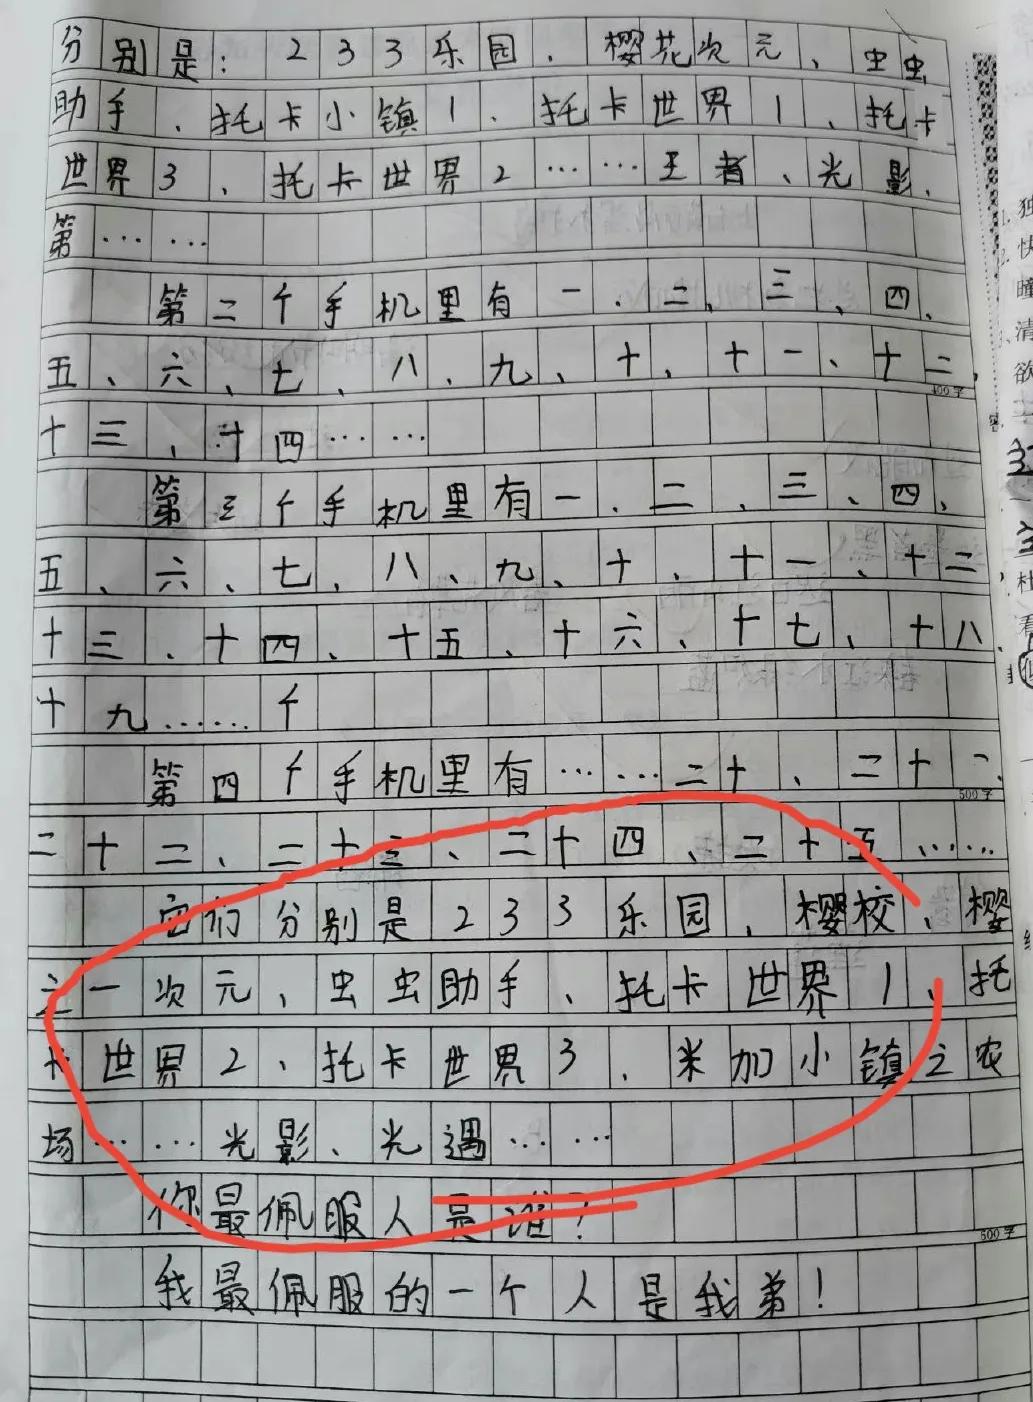 分别是：233乐园、樱花次元、虫虫
助手、托卡小镇1、托卡世界1、托卡
世界3、托卡世界2……王者、光影、
第……
第二个手机里有一、二、三、四、
五、六、七、八、九、十、十一、十二，
400字
十三、十四……
第三个手机里有一、二、三、四、
五、六、七、八、九、十、十一、十二，
十三、十四、十五、十六、十七、十八、
十九……个
第四个手机里有……二十、二十一、
500字
二十二、二十三、二十四、二十五……
它们分别是233乐园、樱校、樱
之一次元、虫虫助手、托卡世界1、托
卡世界2、托卡世界3、米加小镇之农
场……光影、光遇……
你最佩服人是谁？
600字
我最佩服的一个人是我弟！
独
快
瞳
清
欲
杜
看